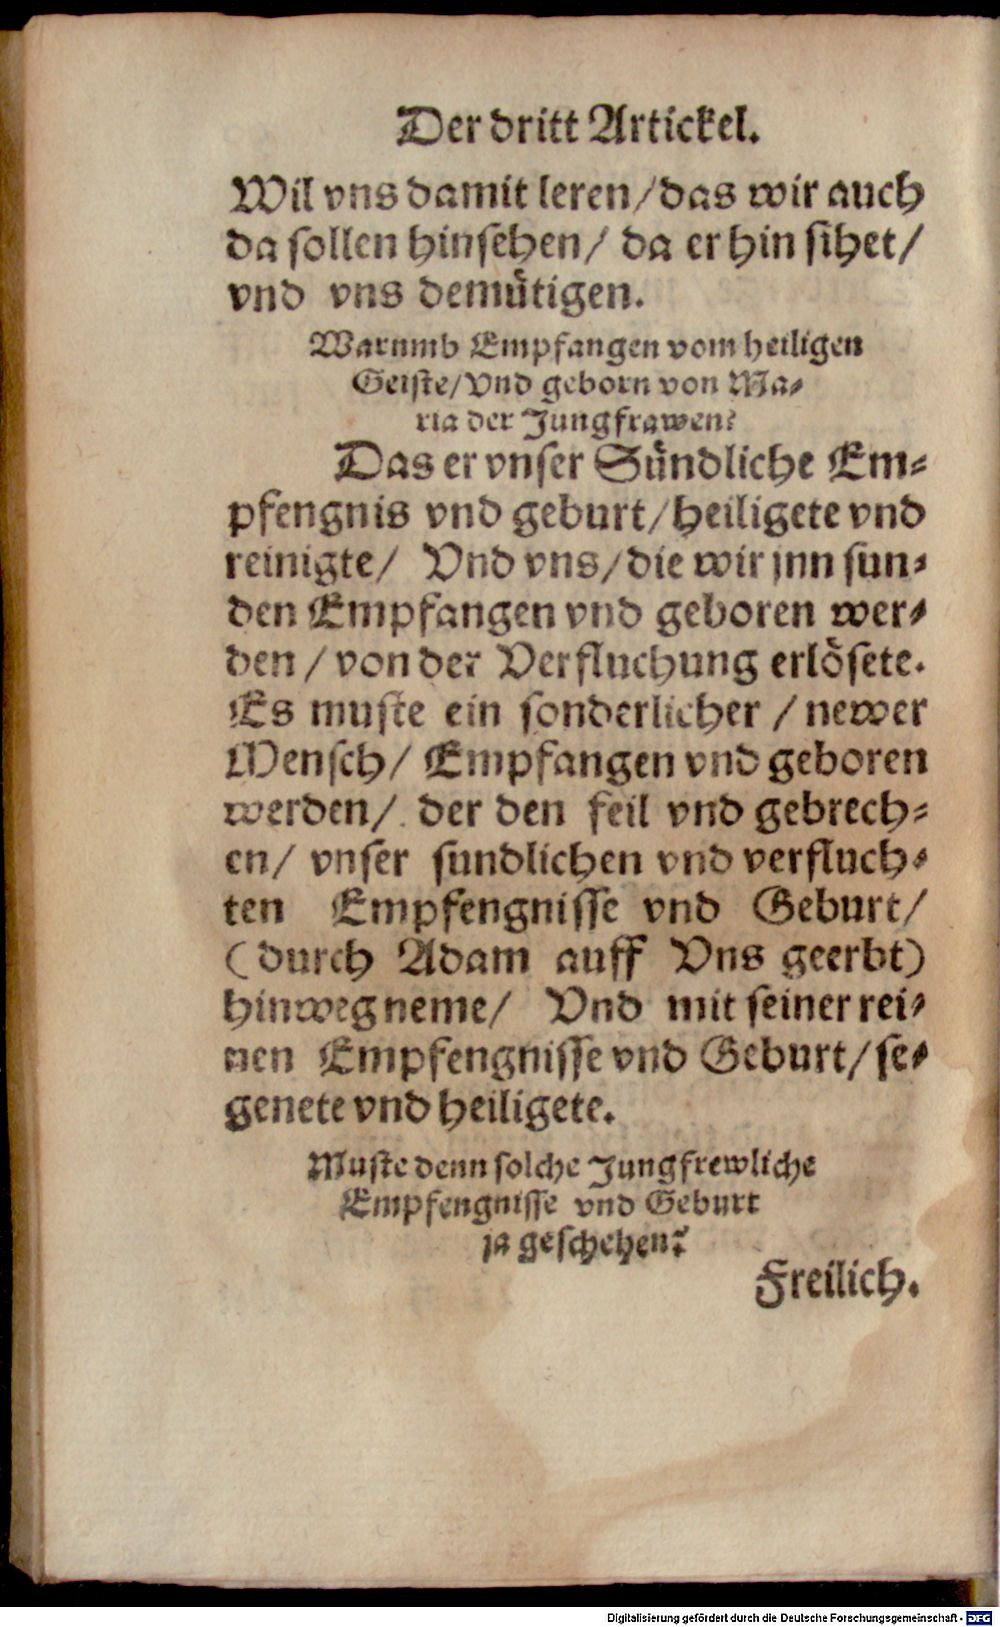 Der dritt Artickel.
Wil vns damit leren/das wir auch
da sollen hinsehen/ da er hin sihet/
vnd vns demütigen.
Warumb Empfangen vom heiligen
Geiste/Vnd geborn von Ma-
ria der Jungfrawen?
Das er vnser Sündliche Em-
pfengnis vnd geburt/heiligete vnd
reinigte/ Vnd vns/die wir jnn sun-
den Empfangen vnd geboren wer-
den/von der Verfluchung erlösete.
Es muste ein sonderlicher/newer
Mensch/ Empfangen vnd geboren
werden/ der den feil vnd gebrech-
en/ vnser sundlichen vnd verfluch-
ten Empfengnisse vnd Geburt/
(durch Adam auff Vns geerbt)
hinwegneme/ Vnd mit seiner rei-
nen Empfengnisse vnd Geburt/se-
genete vnd heiligete.
Muste denn solche Jungfrewliche
Empfengnisse vnd Geburt
ja geschehen?
Freilich.
Digitalisierung gefördert durch die Deutsche Forschungsgemeinschaft - DFG